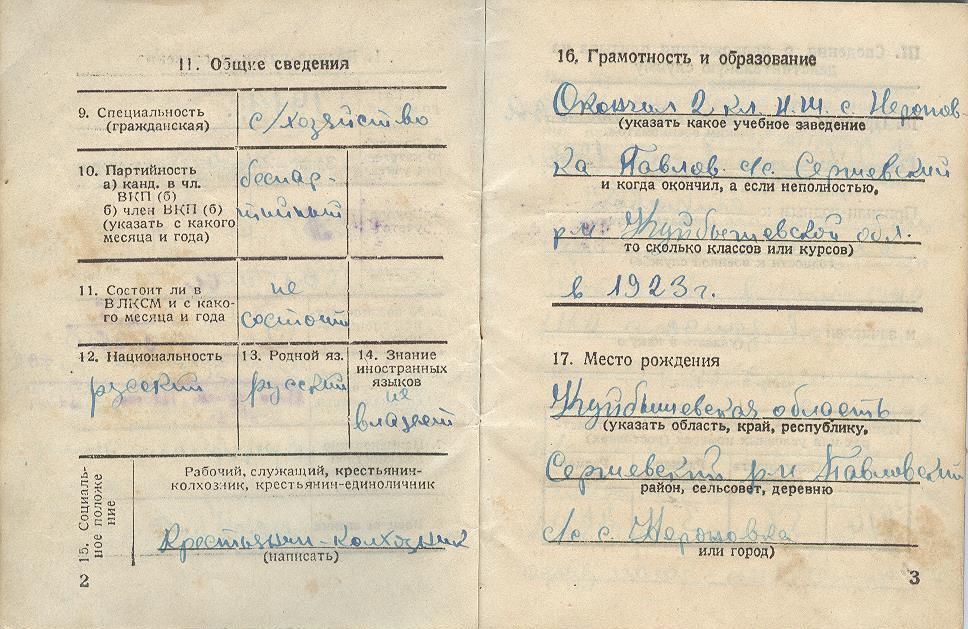 11. Общие сведения
9. Специальность
(гражданская)
с/хозяйство
10. Партийность
а) канд. в чл.
ВКП (б)
б) член ВКП (б)
(указать с какого
месяца и года)
беспар-
тийный
11. Состоит ли в
ВЛКСМ и с како-
го месяца и года
не
состоит
12. Национальность
русский
13. Родной яз.
русский
14. Знание
иностранных
языков
не
владеет
15. Социаль-
ное положе
ние
Рабочий, служащий, крестьянин-
колхозник, крестьянин-единоличник
Крестьянин-колхозник
(написать)
2
16. Грамотность и образование
Окончил 2 кл. Н.Ш. с. Неронов-
(указать какое учебное заведение
ка Павлов. с/с. Сергиевский
и когда окончил, а если неполностью,
р-н Куйбышевской обл.
то сколько классов или курсов)
в 1923 г.
17. Место рождения
Куйбышевская область
(указать область, край, республику,
Сергиевский р-н Павловский
район, сельсовет, деревню
с/с с. Нероновка
или город)
3